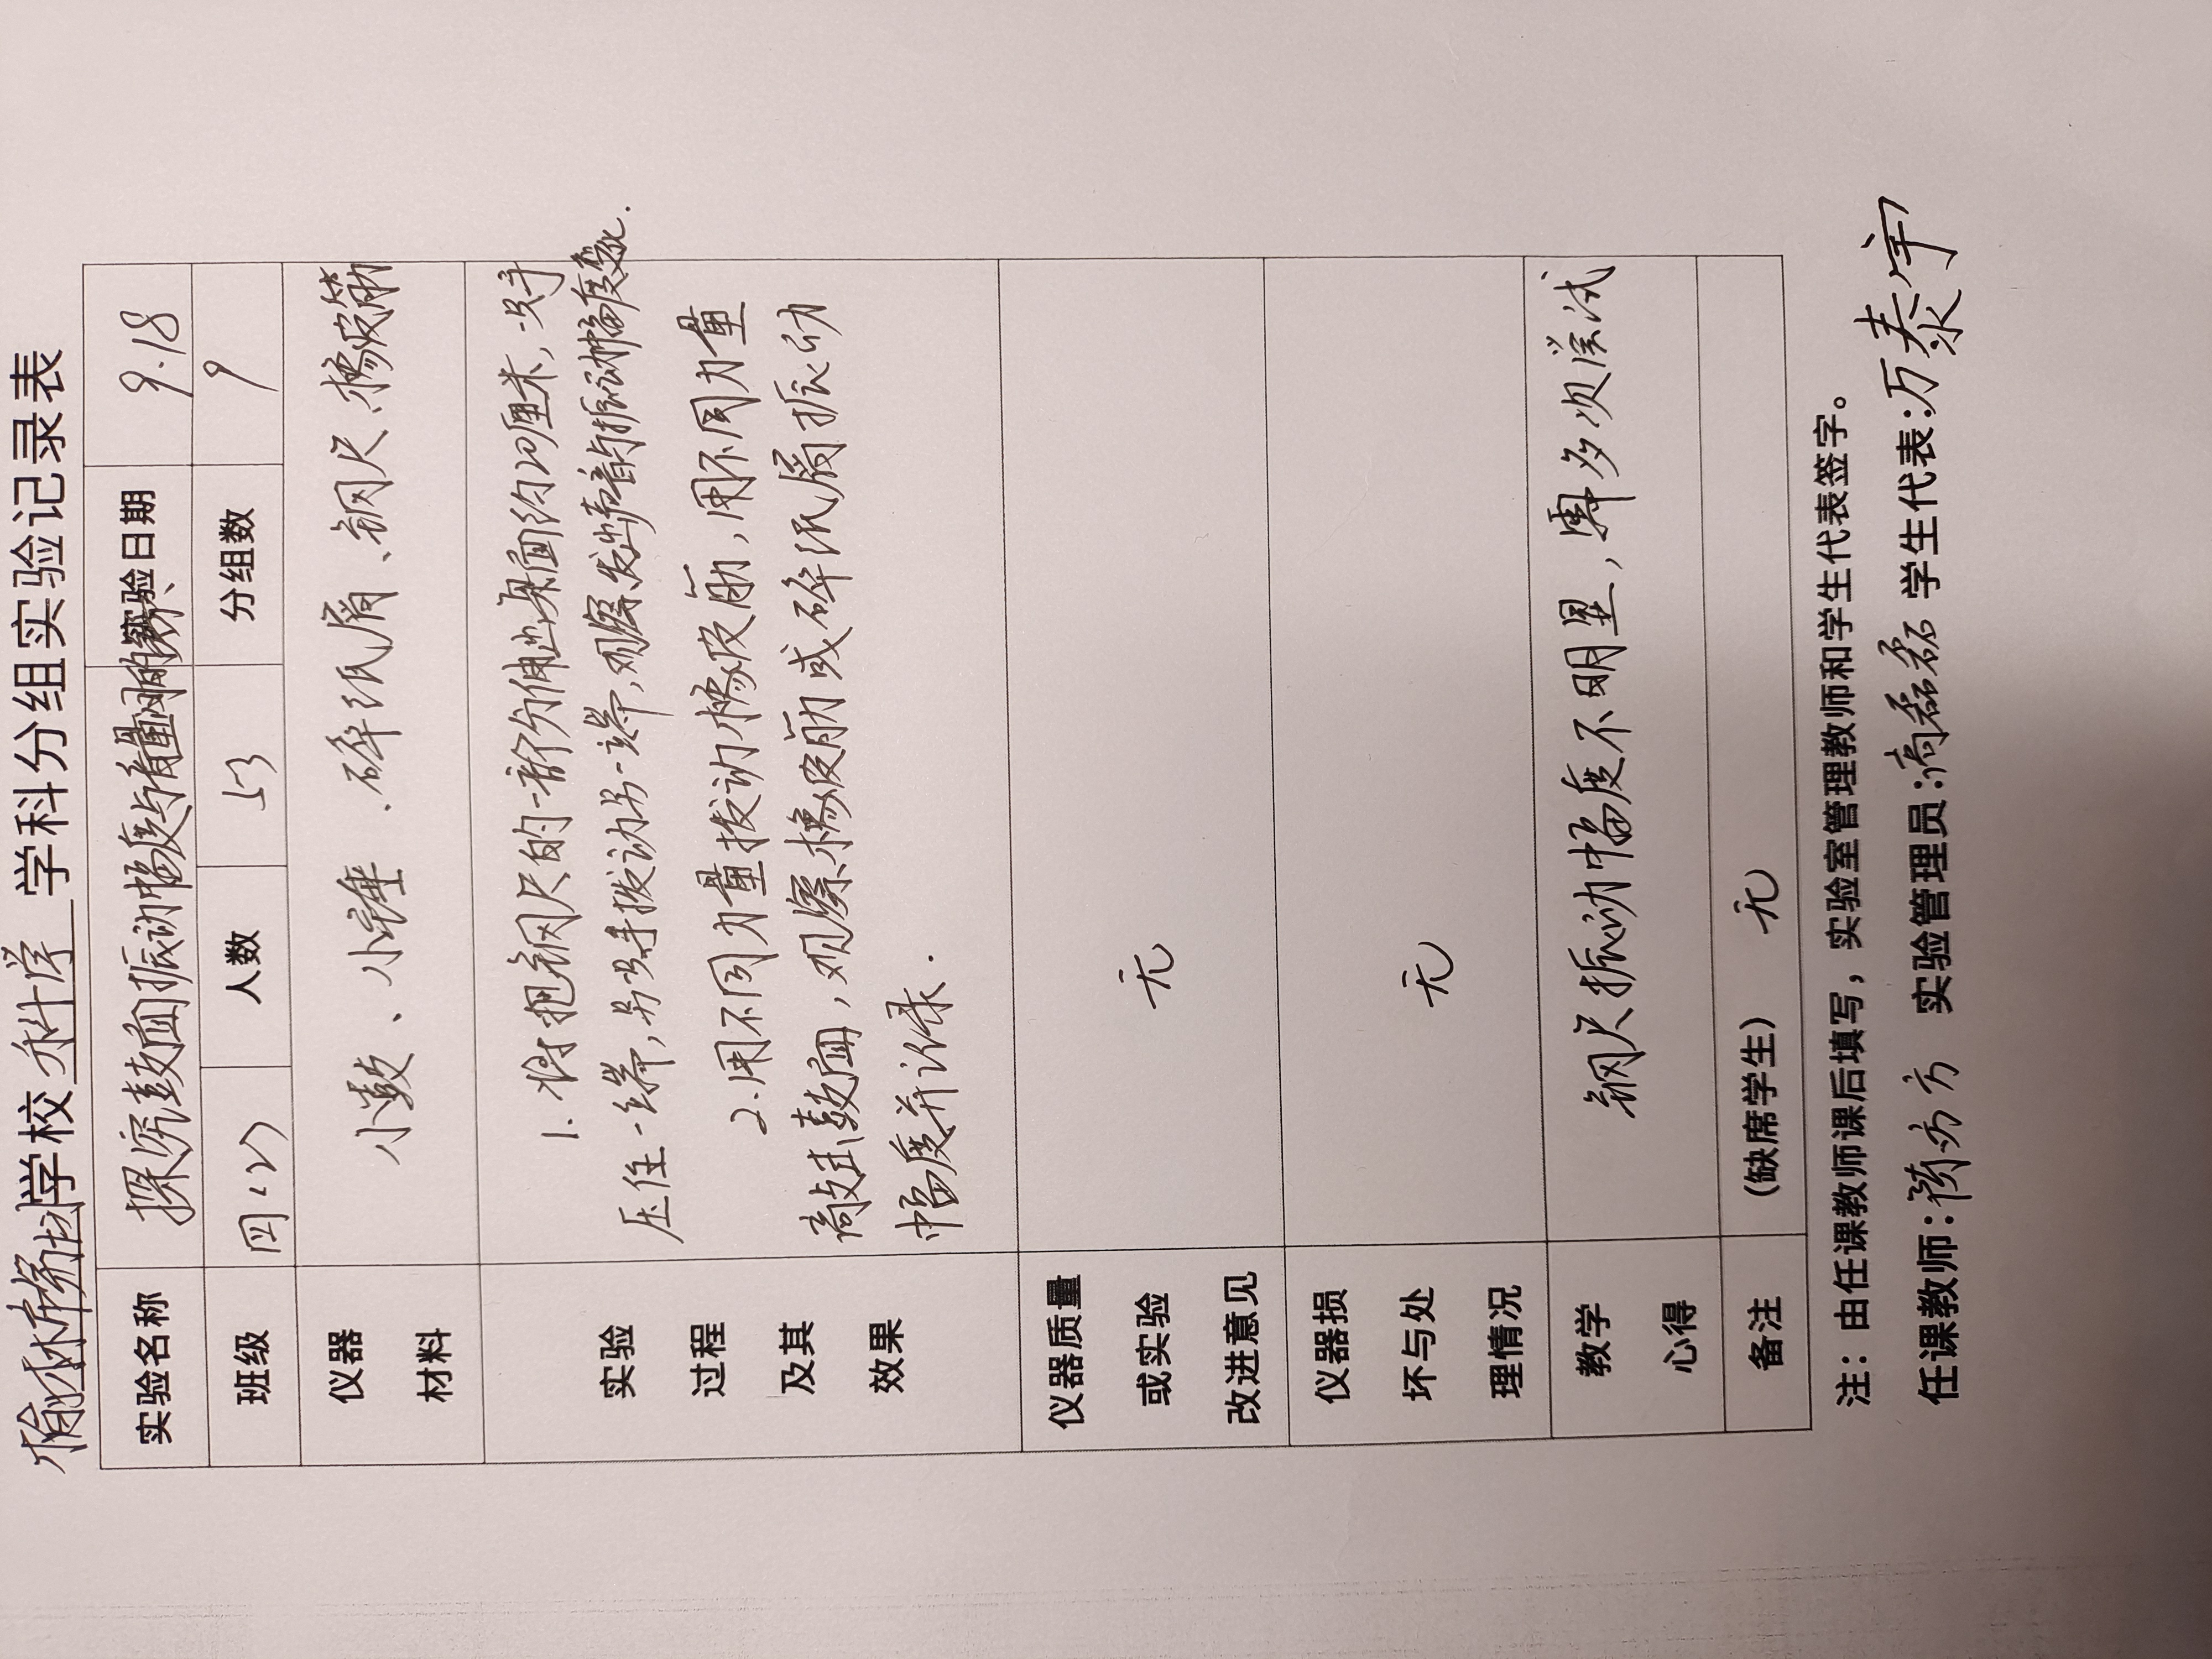 学校 科学 学科分组实验记录表
实验名称 探究鼓面振动幅度与音量 实验日期 9.18
班级 四.(2) 人数 53 分组数 9
仪器 材料 小鼓、小锤、碎纸屑、钢尺、橡皮筋
实验 过程 及其 效果
1. 将把钢尺的一部分伸出桌面约10厘米,一只手
压住一端,另一只手拨动另一端,观察发出声音的振动幅度变化.
2.用不同力量拨动橡皮筋,用不同力量
敲击鼓面,观察橡皮筋或碎纸屑振动
幅度并记录.
仪器质量 或实验 改进意见 无
仪器损 坏与处 理情况 无
教学 心得 钢尺振动幅度不明显,需多次尝试
备注 (缺席学生) 无
注：由任课教师课后填写，实验室管理教师和学生代表签字。
任课教师: 方方 实验管理员: 磊磊 学生代表:万泰宇